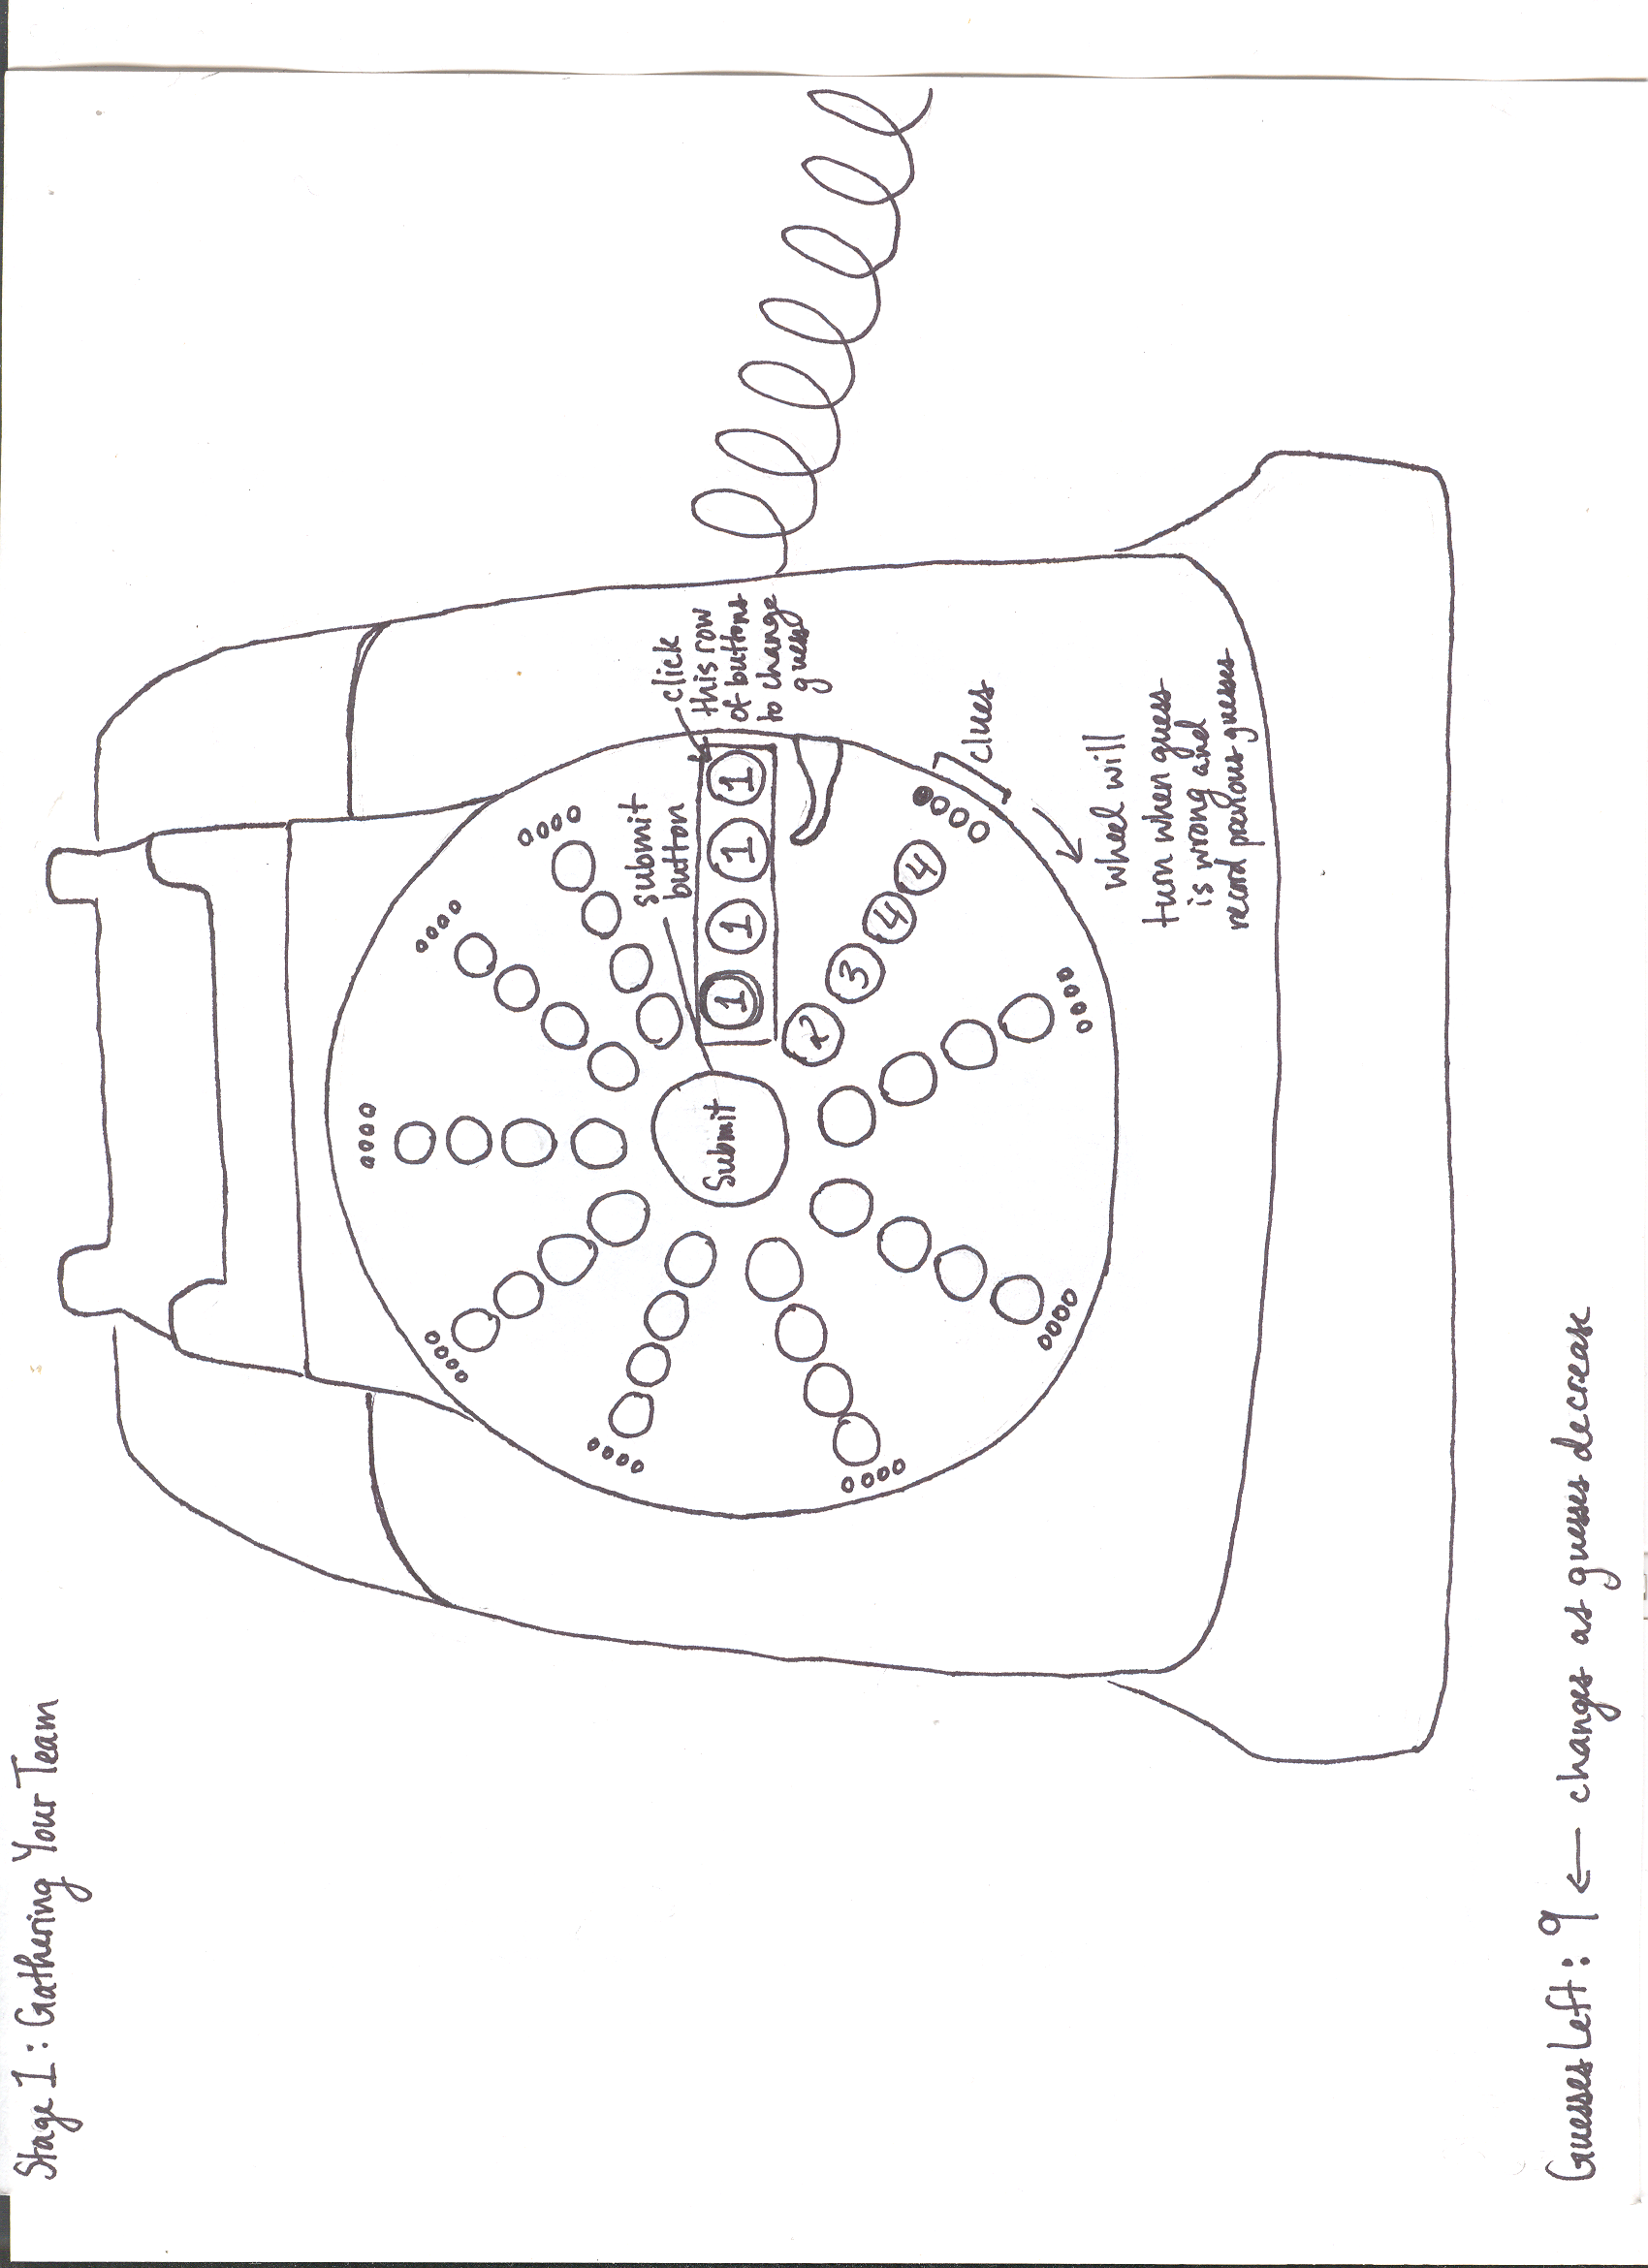 Stage 1: Gathering Your Team
submit
button
click
this row
of buttons
to change
guess
1 1 1 1
Submit
2 3 4 4
clues
wheel will
turn when guess
is wrong and
record previous guesses
Guesses Left: 9 ← changes as guesses decrease